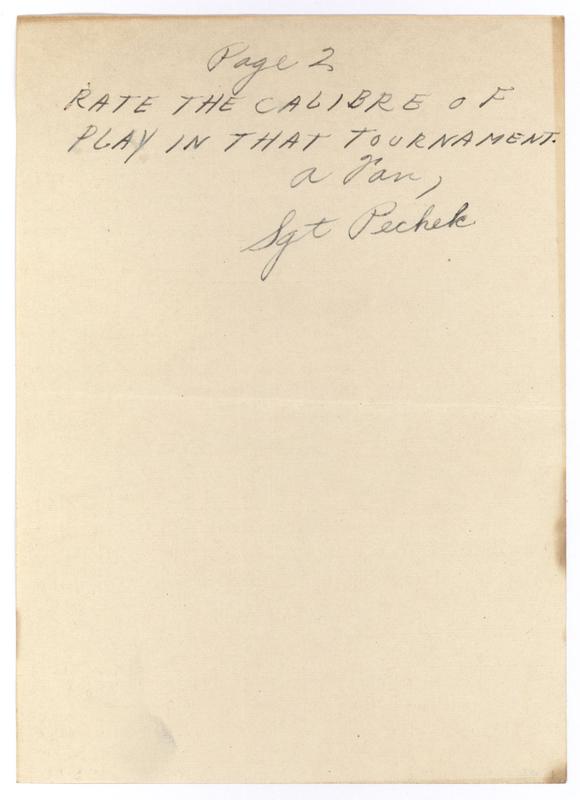 Page 2
RATE THE CALIBRE OF
PLAY IN THAT TOURNAMENT.
a Fan,
Sgt Pechek